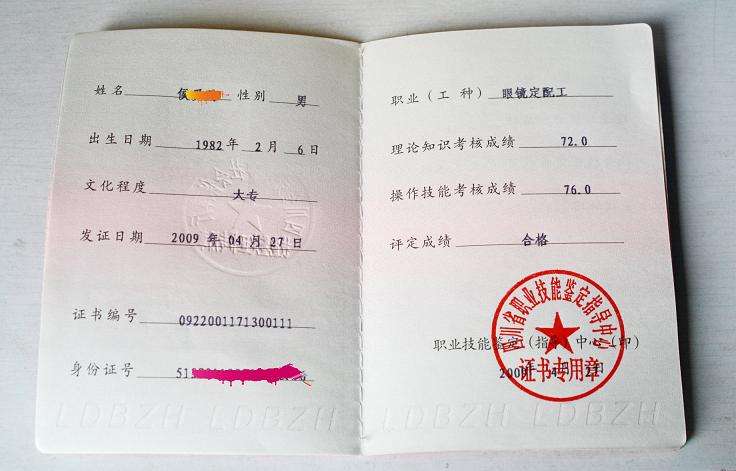 姓名 性别 男
出生日期 1982年 2月 6日
文化程度 大专
发证日期 2009年04月27日
证书编号 0922001171300111
身份证号 51
LDBZH LDBZH
职业（工 种） 眼镜定配工
理论知识考核成绩 72.0
操作技能考核成绩 76.0
评定成绩 合格
四川省职业技能鉴定指导中心
职业技能鉴定（指导）中心（印）
证书专用章
LDBZH LDBZH